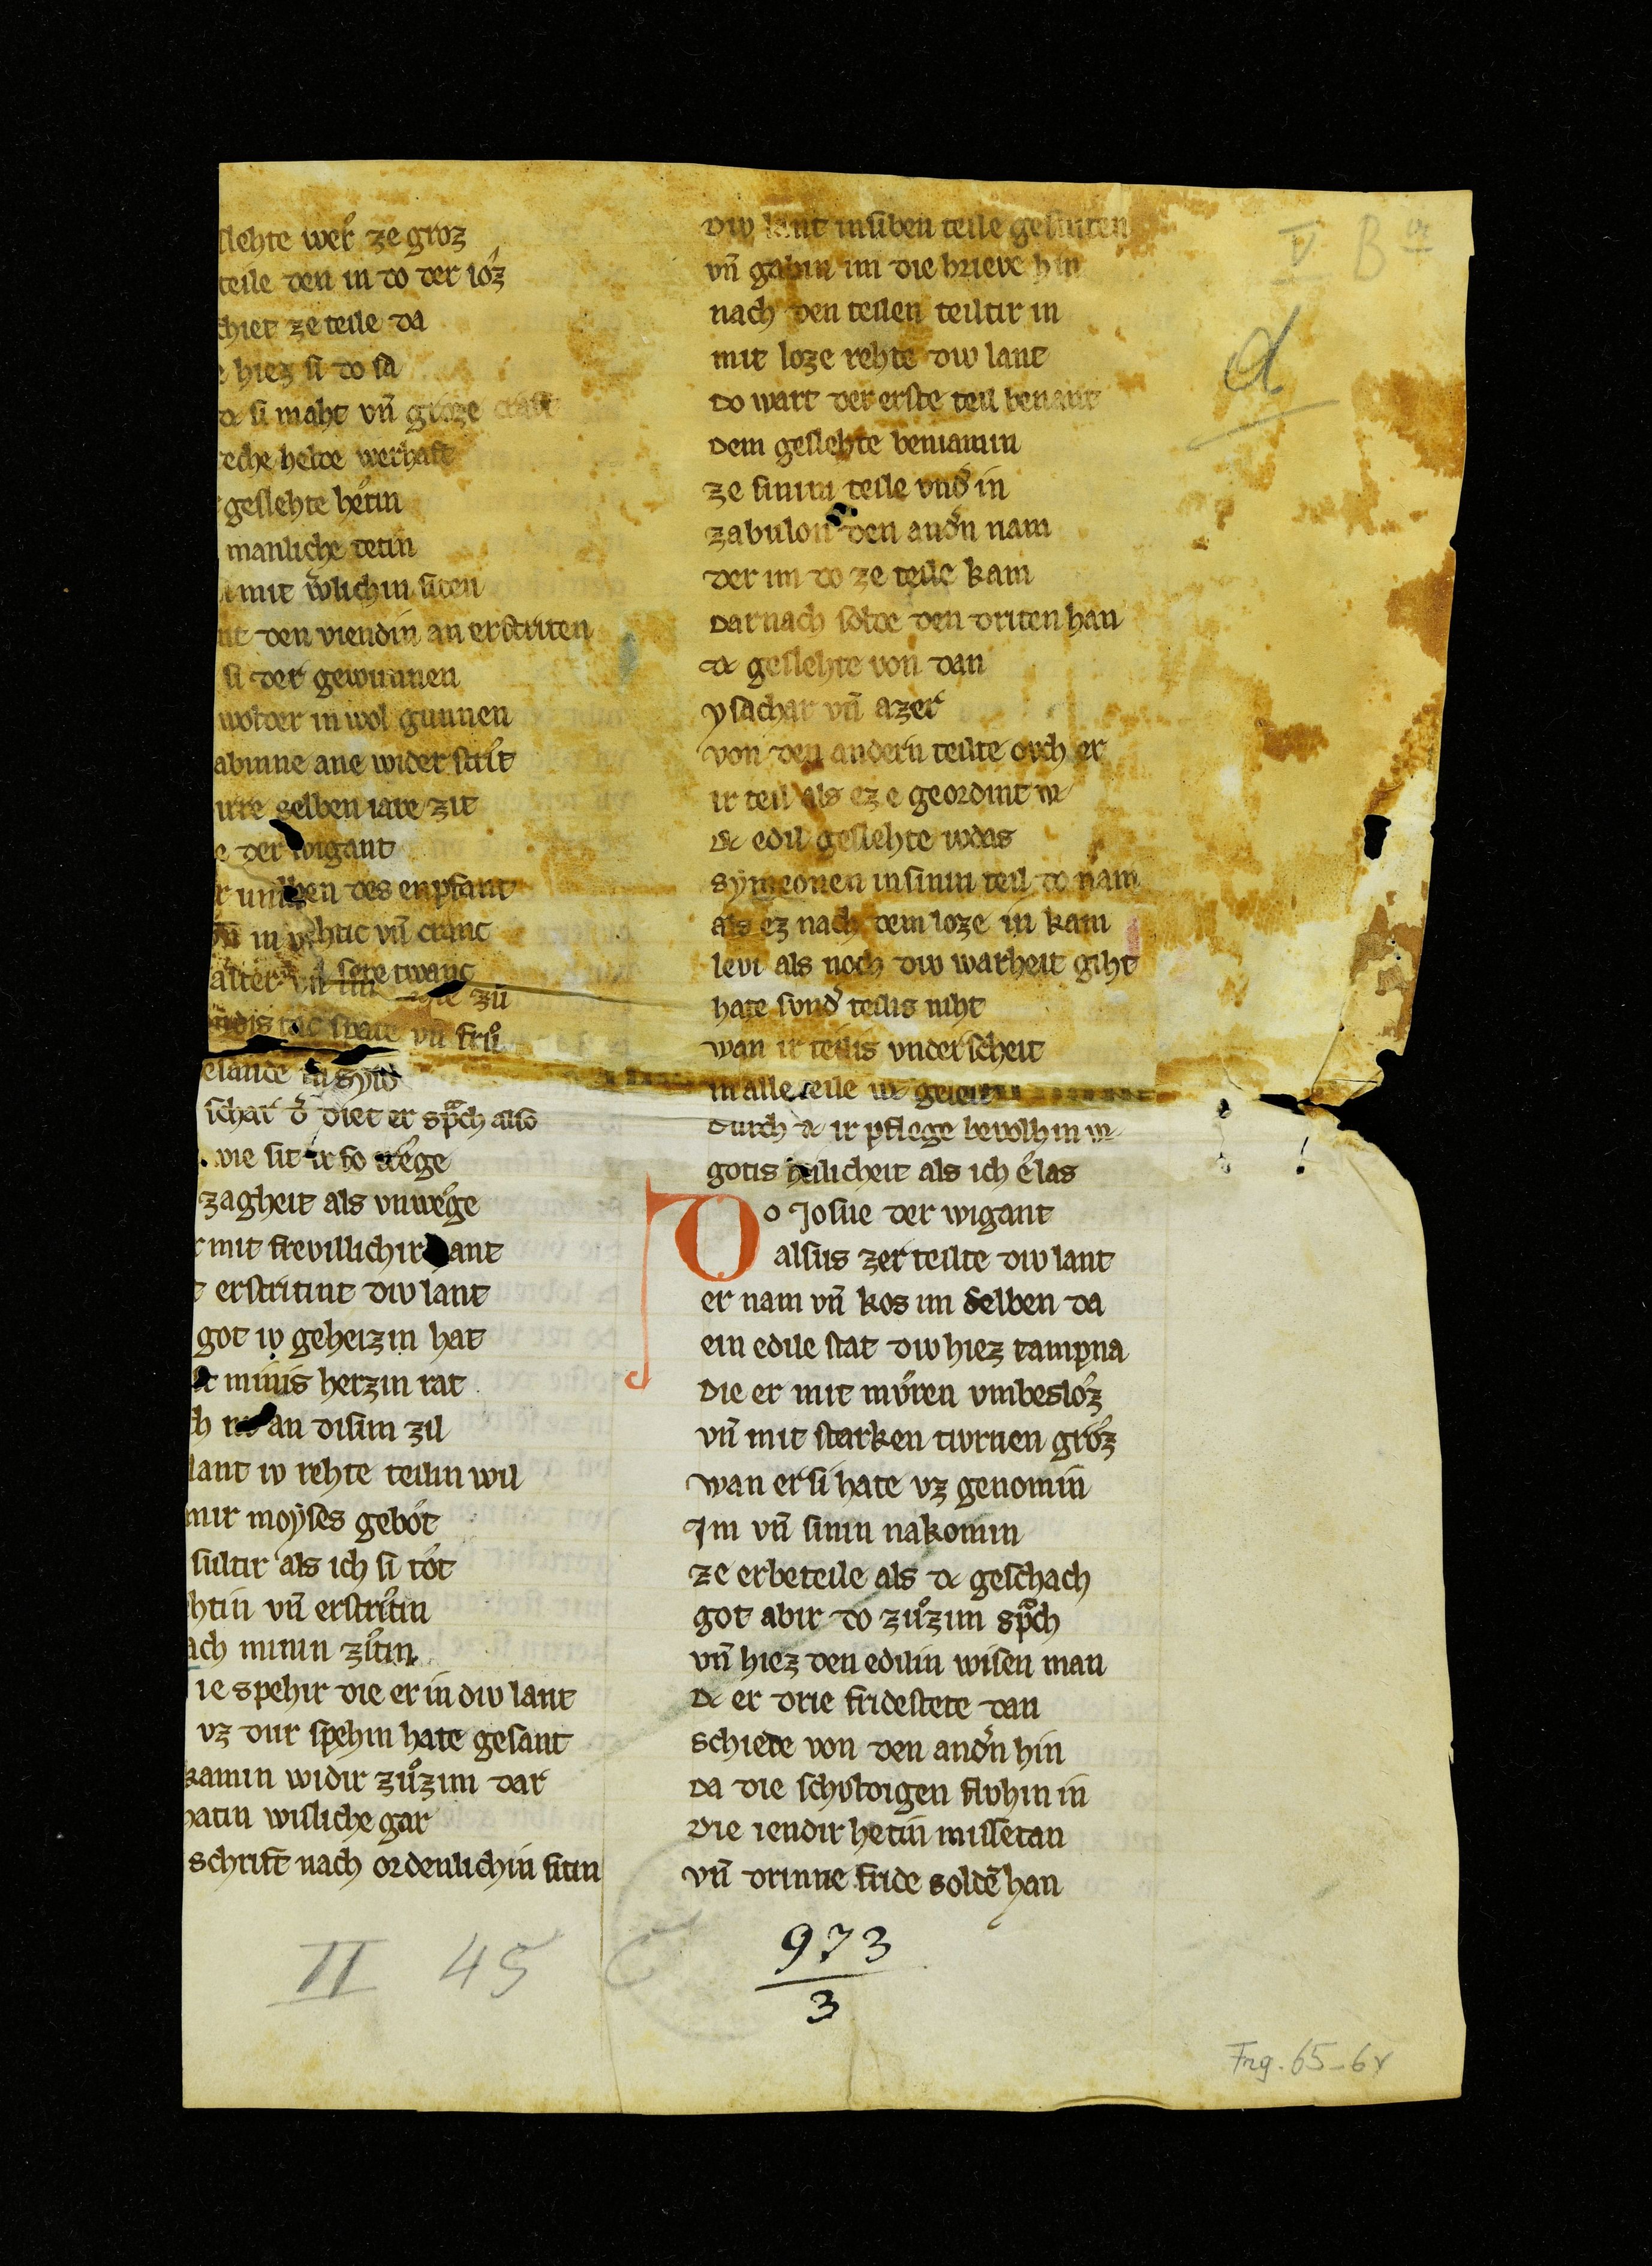 slehte wer ze groz
teile den in do der loz
chiet ze teile da
hiez si do sa
dc si maht vn̄ groze craft
eche helde werhaft
geslehte hetin
manliche tetin
mit w̄lichin siten
nt den viendin an erstriten
si der gewunnen
wolder in wol gunnen
abinne ane wider strit
ure selben iare zit
e der wigant
r unsiben des enpfant
vn̄ in htic vn̄ cranc
alter sere twanc
zu
state vn̄ fru
elande
schar d̄ diet er sprach also
wie sit ir so trege
zagheit als vnwege
r mit frevillichir hant
t erstritint diw lant
got iw geheizin hat
t minis herzin rat
h an disim zil
lant iw rehte teilin wil
mir moyses gebot
siltir als ich si tot
htin vn̄ erstritin
ach minin zitin
ie spehir die er in diw lant
vz dur spehin hate gesant
kamin widir zuͦzim dar
hatin wisliche gar
schrift nach ordenlichin sitin
diw lant in siben teile gesniten
vn̄ gabin im die brieve hin
nach den teilen teiltir in
mit loze rehte diw lant
do wart der erste teil benant
dem geslehte beniamin
ze sinim teile vnd̄ in
zabulon den andn̄ nam
der im do ze teile kam
darnach solde den driten han
dc geslehte von dan
ysachar vn̄ azer
von den andern teilte ovch er
ir teil als ez e geordint wc
dc edil geslehte ivdas
symeonen in sinin teil do nam
als ez nach dem loze in kam
levi als noch diw warheit giht
hate svnd̄ teilis niht
wan ir teilis vnderscheit
in alle teile wc geleit
durch dc ir pflege bevolhin wc
gotis heilicheit als ich e las
Do Josue der wigant
alsus zerteilte diw lant
er nam vn̄ kos im selben da
ein edile stat diw hiez tampna
die er mit mvren vmbesloz
vn̄ mit starken tvrnen groz
wan er si hate vz genomin
Im vn̄ sinin nakomin
ze erbeteile als dc geschach
got abir do zuͦzim sprach
vn̄ hiez den edilin wisen man
dc er drie fridestete dan
schiede von den andn̄ hin
da die schvldigen flvhin in
die iendir hetin missetan
vn̄ drinne fride soldē han
V B
d
II 45
973
3
Frg. 65-6v